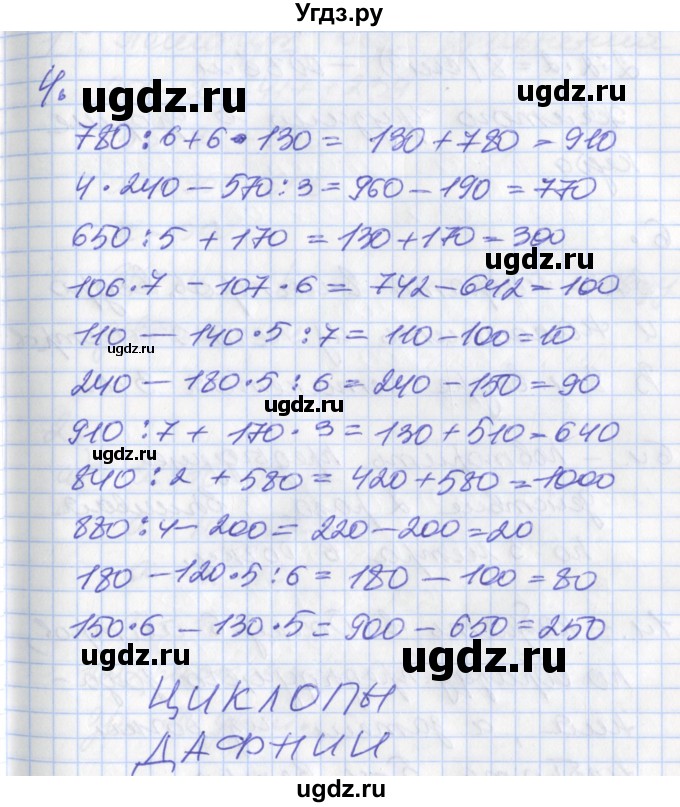 Угдз.ру
4.
ugdz.ru
780 : 6 + 6 · 130 = 130 + 780 = 910
4 · 240 – 570 : 3 = 960 – 190 = 770
650 : 5 + 170 = 130 + 170 = 300
ugdz.ru
106 · 7 – 107 · 6 = 742 – 642 = 100
110 – 140 · 5 : 7 = 110 – 100 = 10
ugdz.ru
240 – 180 · 5 : 6 = 240 – 150 = 90
ugdz.ru
910 : 7 + 170 · 3 = 130 + 510 = 640
ugdz.ru
840 : 2 + 580 = 420 + 580 = 1000
880 : 4 – 200 = 220 – 200 = 20
180 – 120 · 5 : 6 = 180 – 100 = 80
150 · 6 – 130 · 5 = 900 – 650 = 250
ugdz.ru
ugdz.ru
ЦИКЛОПЫ
ДАФНИИ